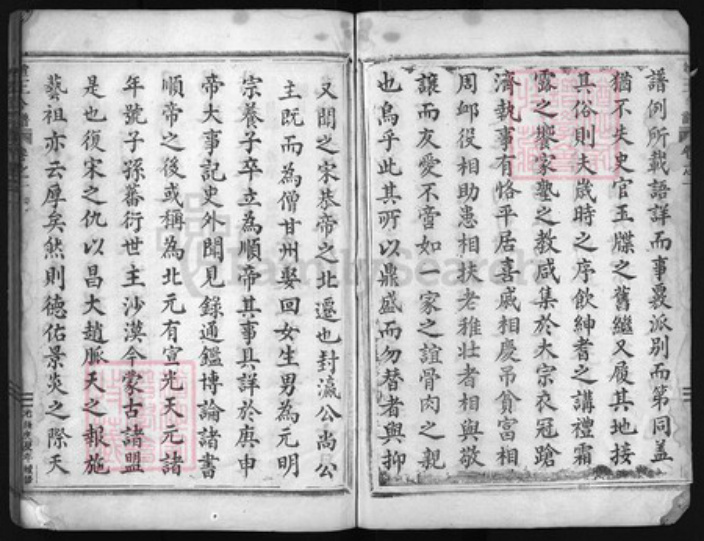 譜例所載語詳而事覈派別而第同盖
猶不失史官玉牒之舊繼又履其地接
其俗則夫歲時之序飲紳耆之講禮霜
露之饗家塾之教咸集於大宗衣冠蹌
濟執事有恪平居喜戚相慶吊貧富相
周邮役相助患相扶老稚壯者相與敬
讓而友愛不啻如一家之誼骨肉之親
也烏乎此其所以鼎盛而勿替者與抑
又聞之宋恭帝之北遷也封瀛公尚公
主既而為僧甘州娶回女生男為元明
宗養子卒立為順帝其事具詳於庚申
帝大事記史外聞見錄通鑑博論諸書
順帝之後或稱為北元有宣光天元諸
年號子孫蕃衍世主沙漠今蒙古諸盟
是也復宋之仇以昌大趙脈天之報施
藝祖亦云厚矣然則德佑景炎之際天
FamilySearch